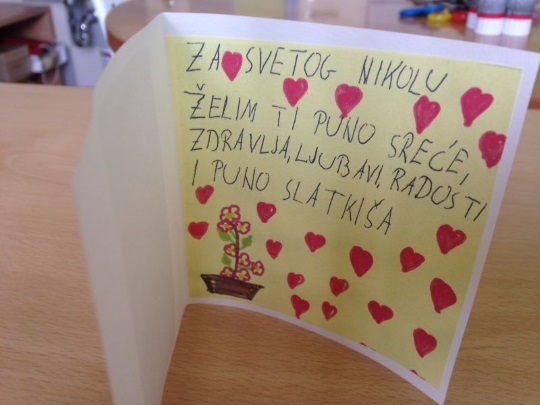 ZA SVETOG NIKOLU
ŽELIM TI PUNO SREĆE,
ZDRAVLJA, LJUBAVI, RADOSTI
I PUNO SLATKIŠA